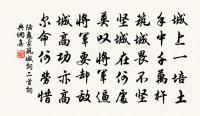 城上一培土
手中千萬杵
築城畏不堅
堅城在何處
莫嘆將軍逼
將軍要却敵
城高功亦高
尔命何勞惜
陸龜蒙築城詞二首詞
典網集